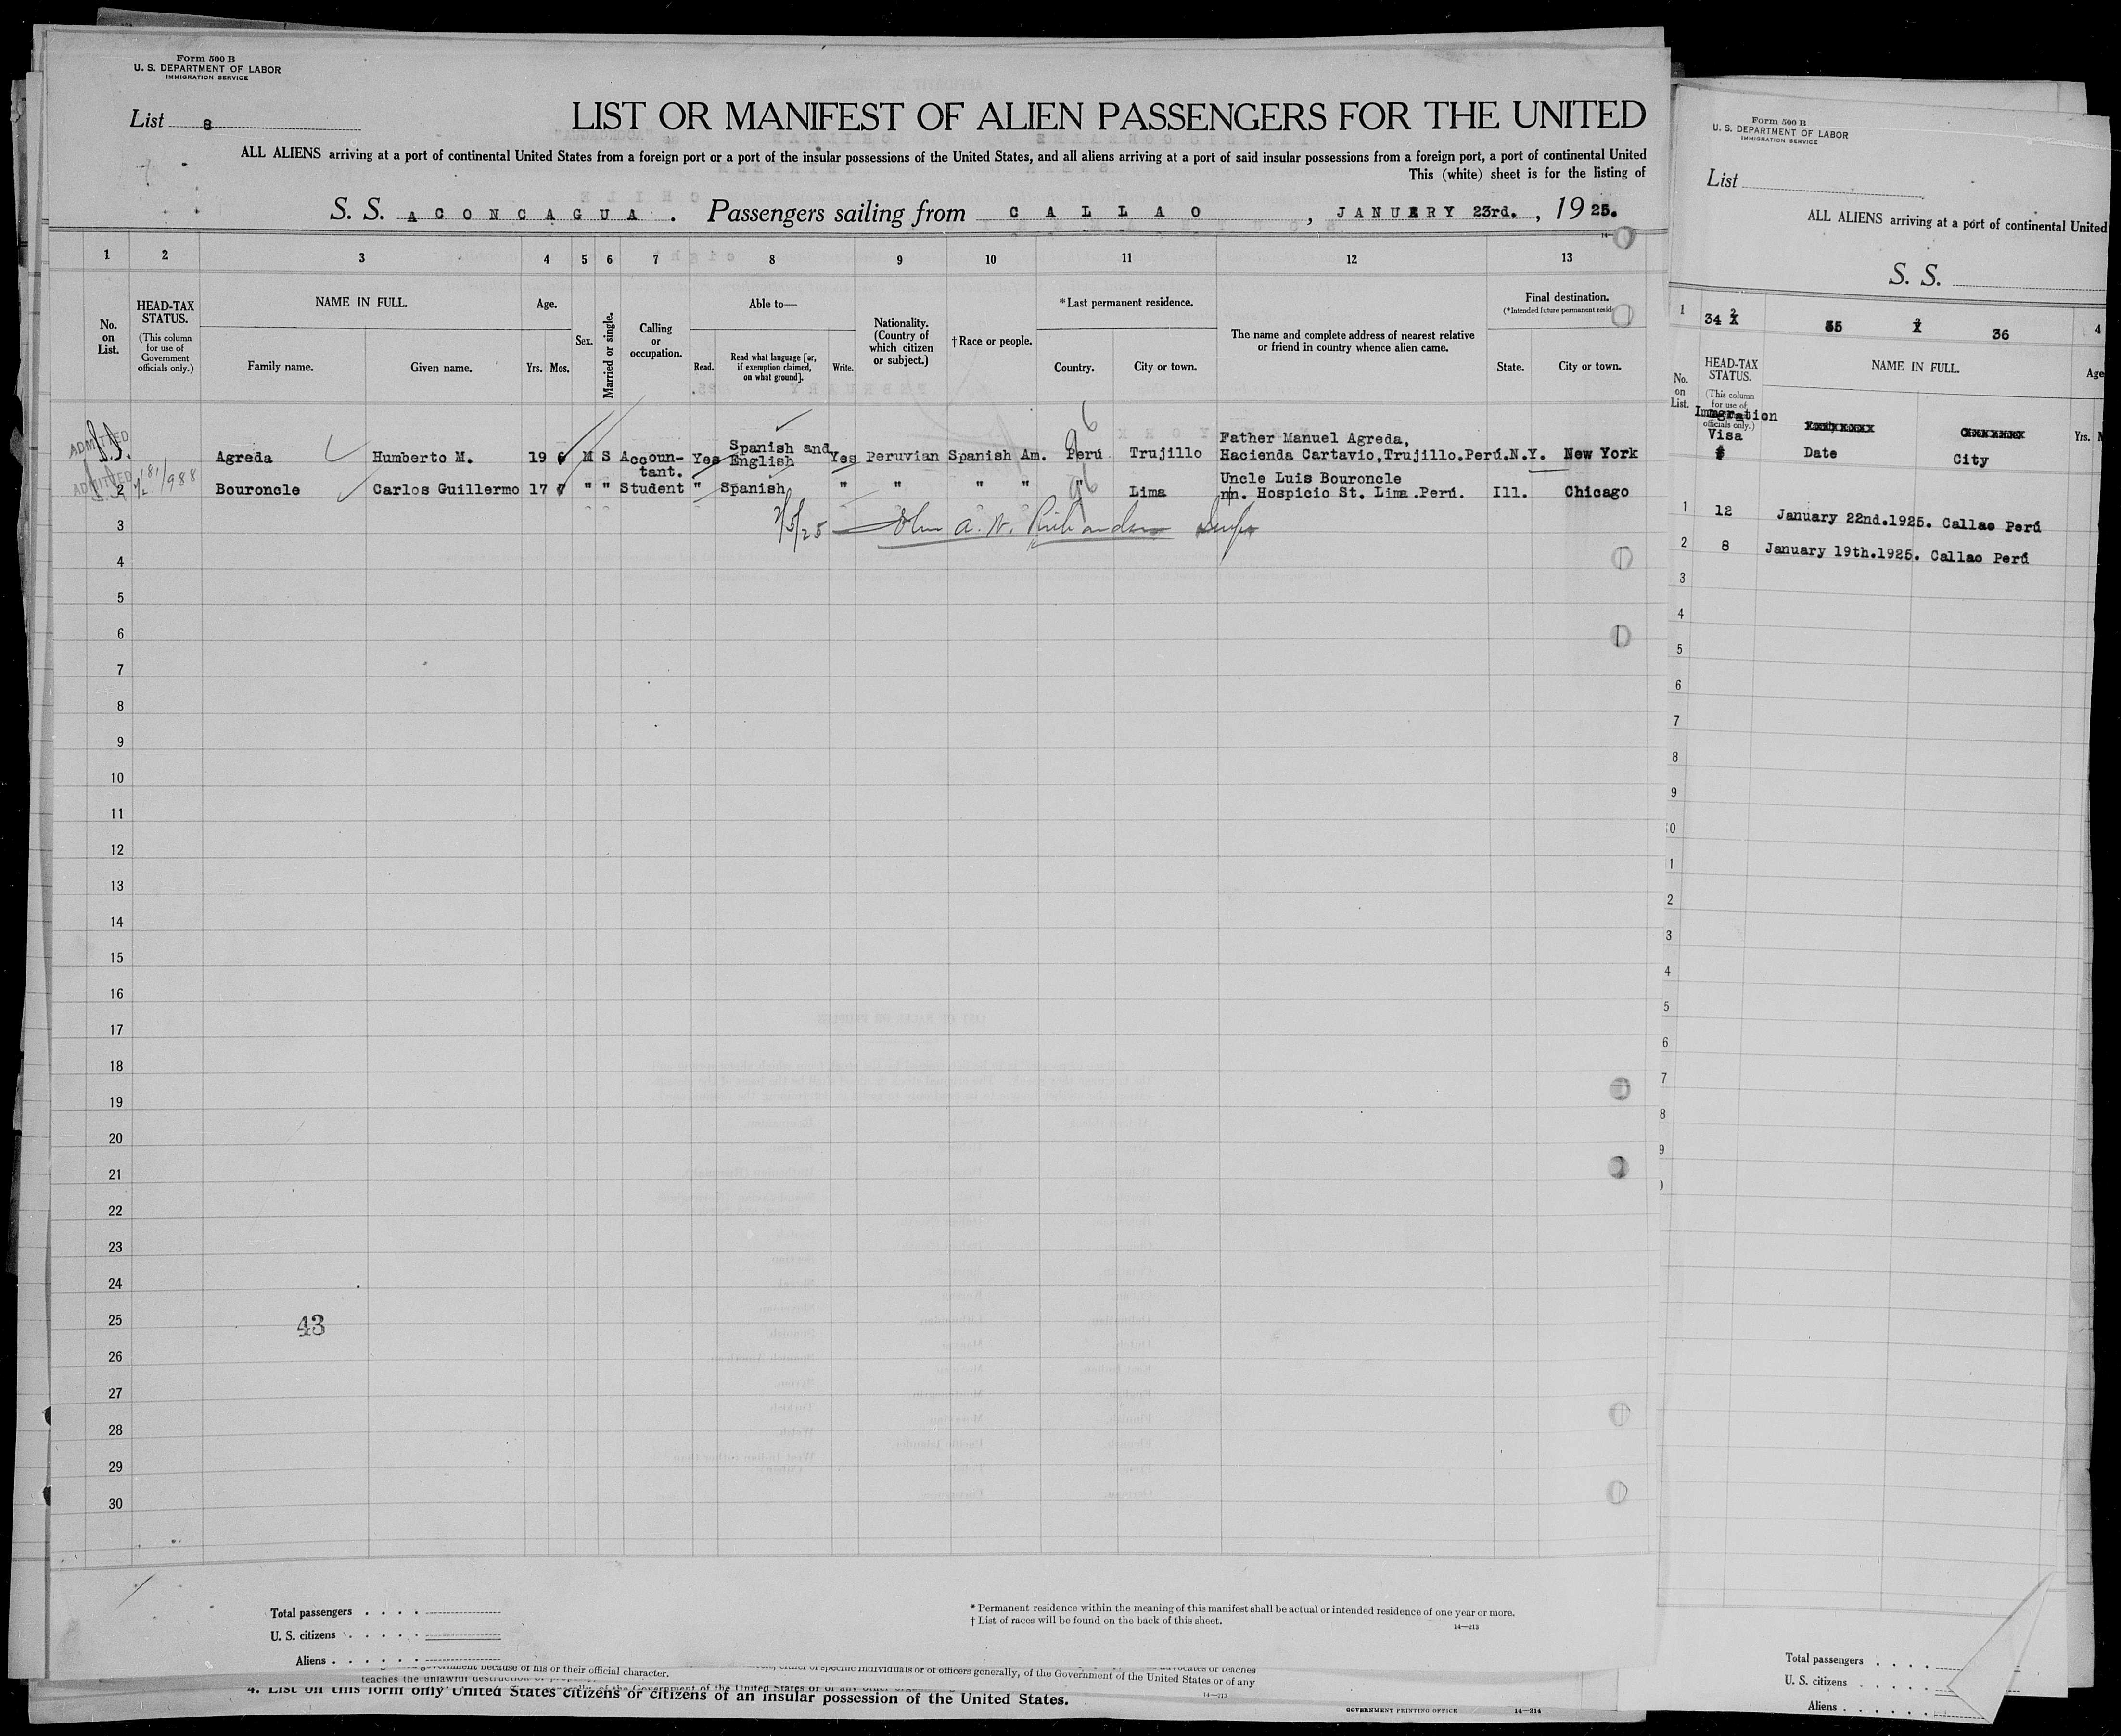 Form 500 B
U. S. DEPARTMENT OF LABOR
IMMIGRATION SERVICE
List 8
LIST OR MANIFEST OF ALIEN PASSENGERS FOR THE UNITED
ALL ALIENS arriving at a port of continental United States from a foreign port or a port of the insular possessions of the United States, and all aliens arriving at a port of said insular possessions from a foreign port, a port of continental United
This (white) sheet is for the listing of
S. S. ACONCAGUA. Passengers sailing from CALLAO, JANUARY 23rd., 1925.
1 2 3 4 5 6 7 8 9 10 11 12 13
No. on List.
HEAD-TAX STATUS.
(This column for use of Government officials only.)
NAME IN FULL.
Family name. Given name.
Age.
Yrs. Mos.
Sex.
Married or single.
Calling or occupation.
Able to—
Read. Read what language [or, if exemption claimed, on what ground]. Write.
Nationality. (Country of which citizen or subject.)
†Race or people.
*Last permanent residence.
Country. City or town.
The name and complete address of nearest relative or friend in country whence alien came.
Final destination.
(*Intended future permanent resid
State. City or town.
ADMITTED
Agreda Humberto M. 19 6 M S Accoun-tant. Yes Spanish and English Yes Peruvian Spanish Am. Perú Trujillo Father Manuel Agreda, Hacienda Cartavio,Trujillo.Perú. N.Y. New York
ADMITTED
2 Bouroncle Carlos Guillermo 17 7 " " Student " Spanish " " " " " Lima Uncle Luis Bouroncle nn. Hospicio St. Lima.Perú. Ill. Chicago
2/5/25 John A. W. Richardson
3
4
5
6
7
8
9
10
11
12
13
14
15
16
17
18
19
20
21
22
23
24
25
43
26
27
28
29
30
Total passengers
U. S. citizens
Aliens
* Permanent residence within the meaning of this manifest shall be actual or intended residence of one year or more.
† List of races will be found on the back of this sheet.
14—213
government because of his or their official character.
teaches the unlawful destruction of
of specific individuals or of officers generally, of the Government of the United States or of any
14—213
4. List on this form only United States citizens or citizens of an insular possession of the United States.
GOVERNMENT PRINTING OFFICE 14—214
Form 500 B
U. S. DEPARTMENT OF LABOR
IMMIGRATION SERVICE
List
ALL ALIENS arriving at a port of continental United
S. S.
1 34 2 35 2 36 4
No. on List.
HEAD-TAX STATUS.
(This column for use of officials only.)
NAME IN FULL.
Age
Yrs.
Immgration Visa #
Date City
1 12 January 22nd.1925. Callao Perú
2 8 January 19th.1925. Callao Perú
3
4
5
6
7
8
9
0
1
2
3
4
5
6
7
8
9
Total passengers
U. S. citizens
Aliens